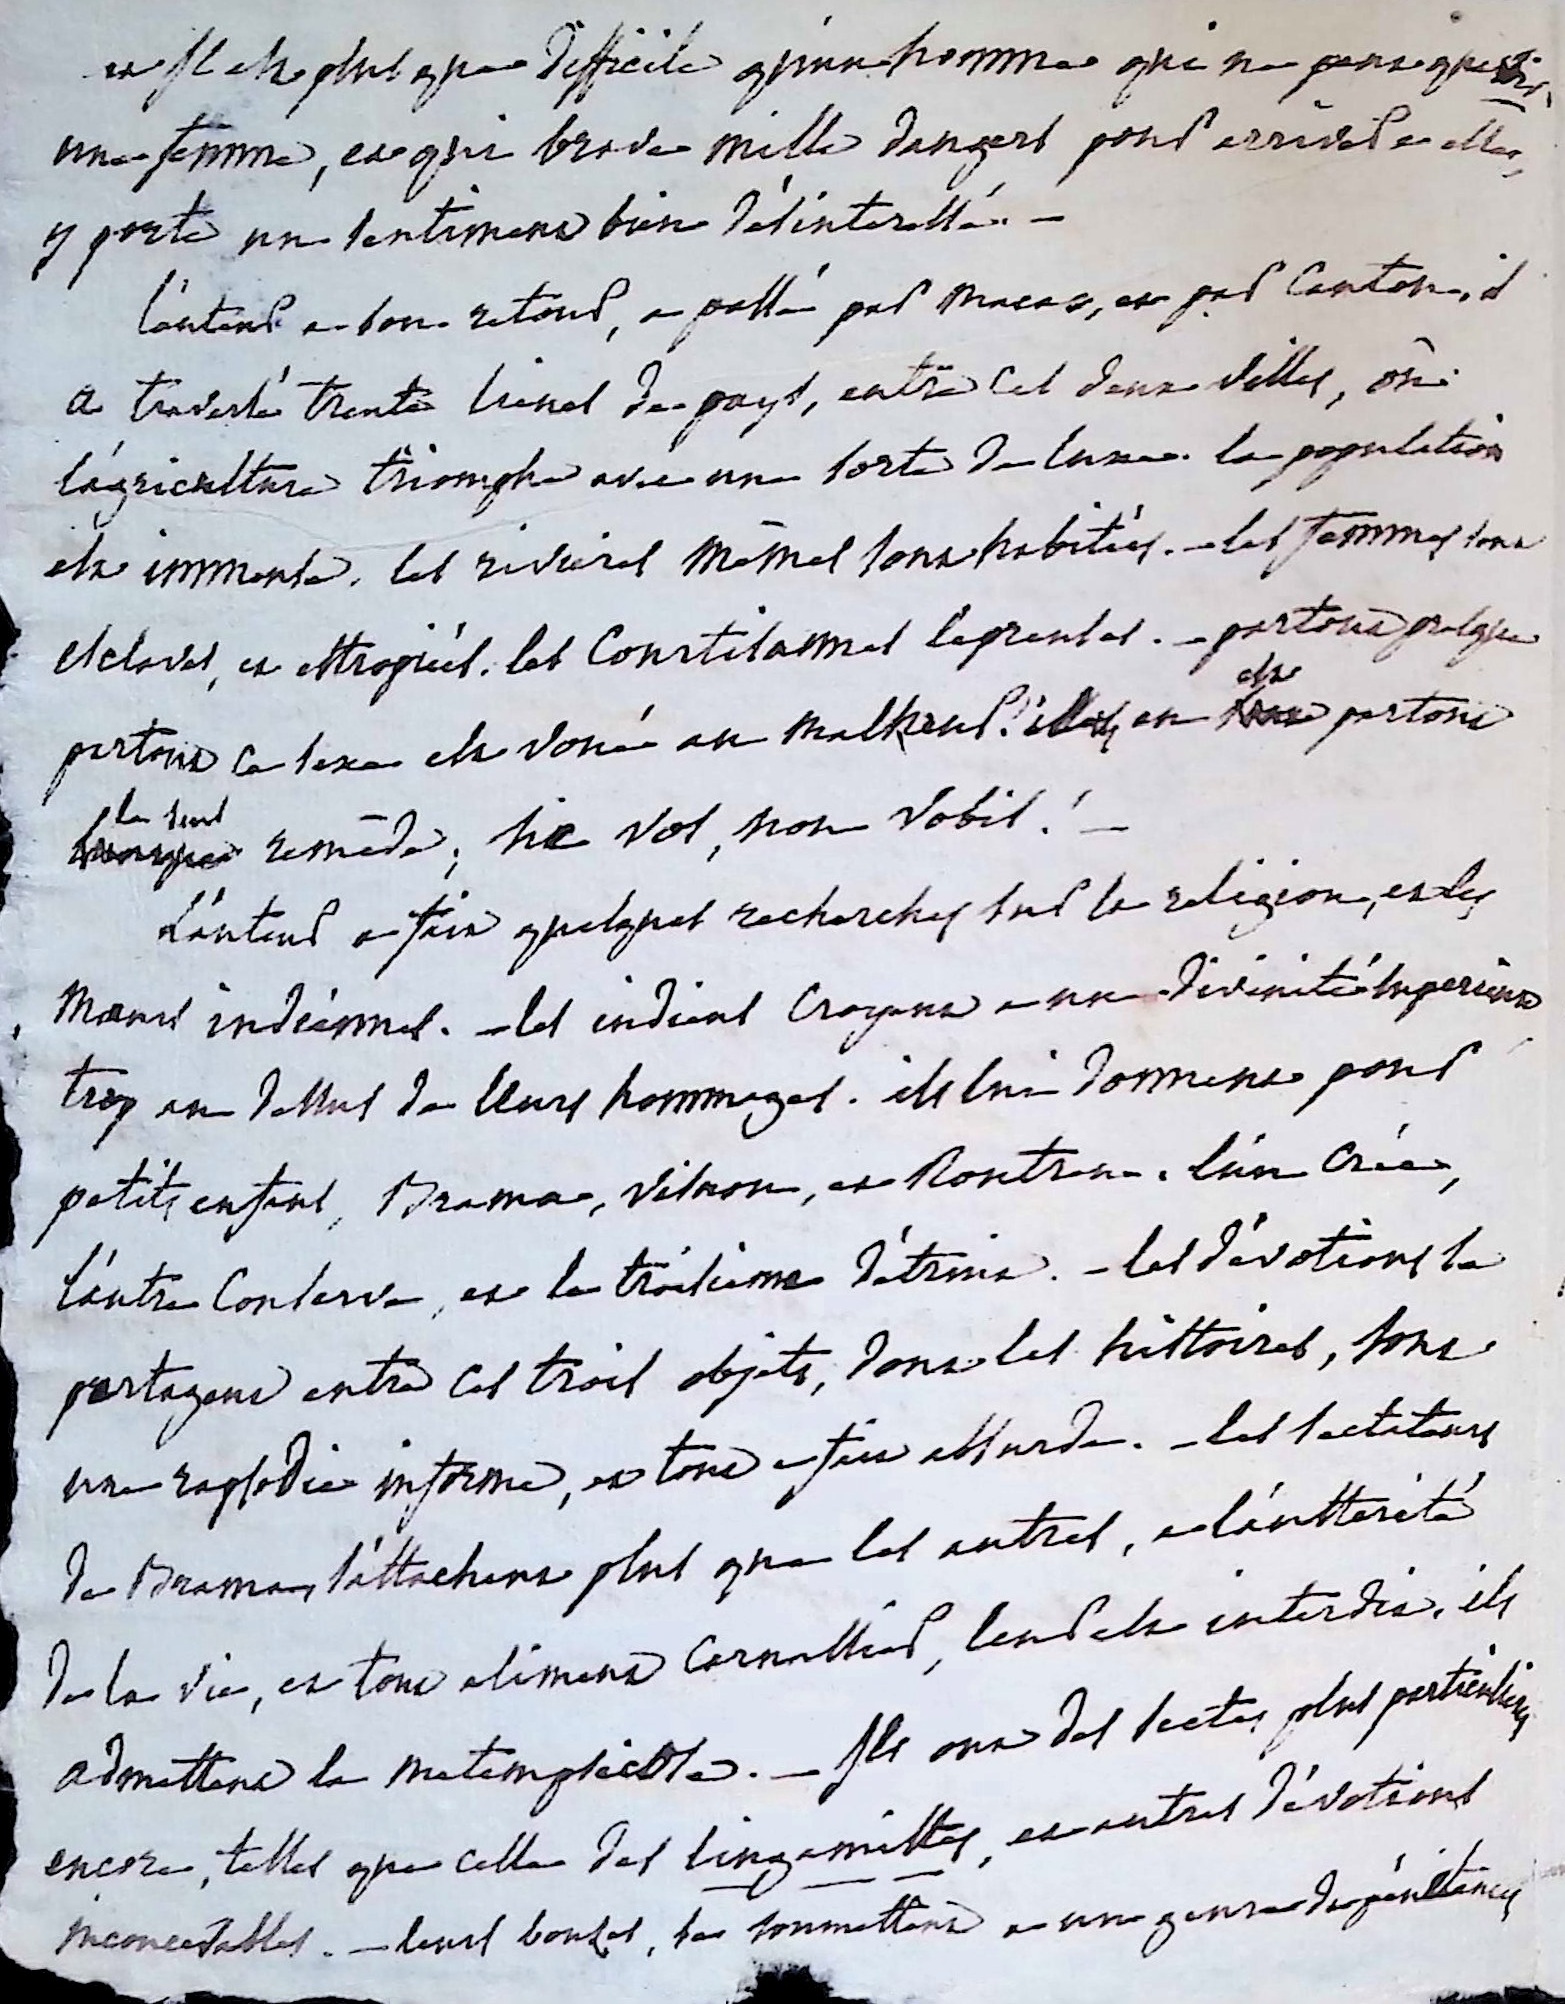 et il est plus que difficile qu'un homme qui ne pense que
une femme, et qui brave mille dangers pour arriver a elle,
y porte un sentiment bien désinteressé. —
L'auteur a son retour, a passé par Macao, et par Canton, il
a traversé trente lieues de pays, entre ces deux villes, où
l'agriculture triomphe avec une sorte de luxe. la population
est immense. les rivieres mêmes sont habitées. — les femmes sont
esclaves, et estropiées. les Courtisannes lépreuses. — partout presque
partout ce sexe est voué au malheur. il en est partout
le seul remède; sic vos, non vobis! —
L'auteur a fait quelques recherches sur la religion, et les
mœurs indiennes. — les indiens croyent a une divinité superieure
trop au dessus de leurs hommages. ils lui donnent pour
petits enfans, Brama, Visnou, et Routren. l'un crée,
l'autre conserve, et le troisieme détruit. — les dévotions se
partagent entre ces trois objets, dont les histoires, sont
une rapsodie informe, et tout a fait absurde. — les sectateurs
de Brama, s'attachent plus que les autres, a l'austerité
de la vie, et tout aliment carnassier, leur est interdit. ils
admettent la metempsicose. — Ils ont des sectes plus particulieres
encore, telles que celle des lingamistes, et autres dévotions
inconcevables. — leurs bonzes, se soumettent a un genre de pénitences